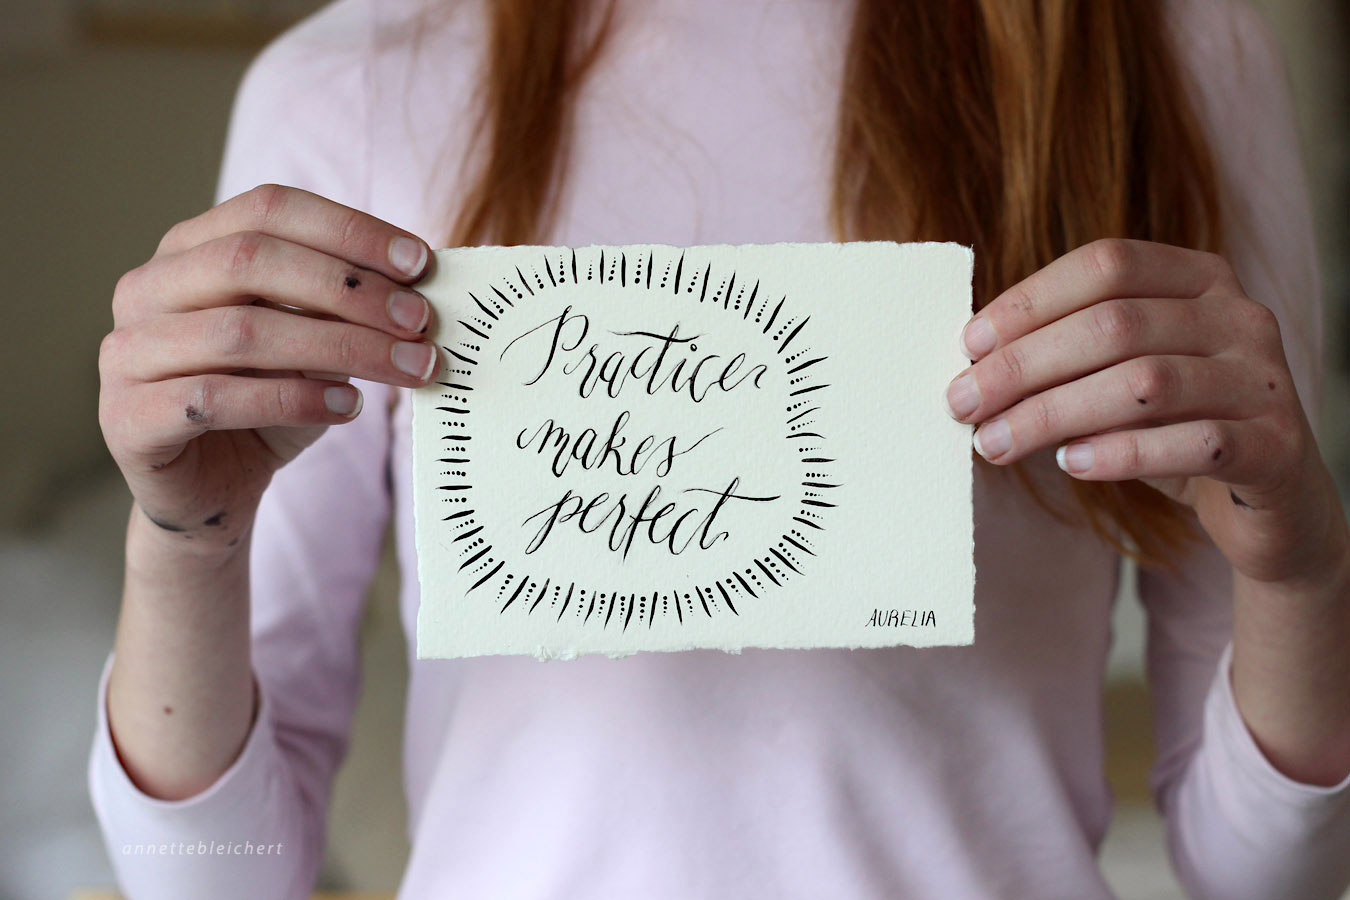 Practice
makes
perfect
AURELIA
annettebleichert